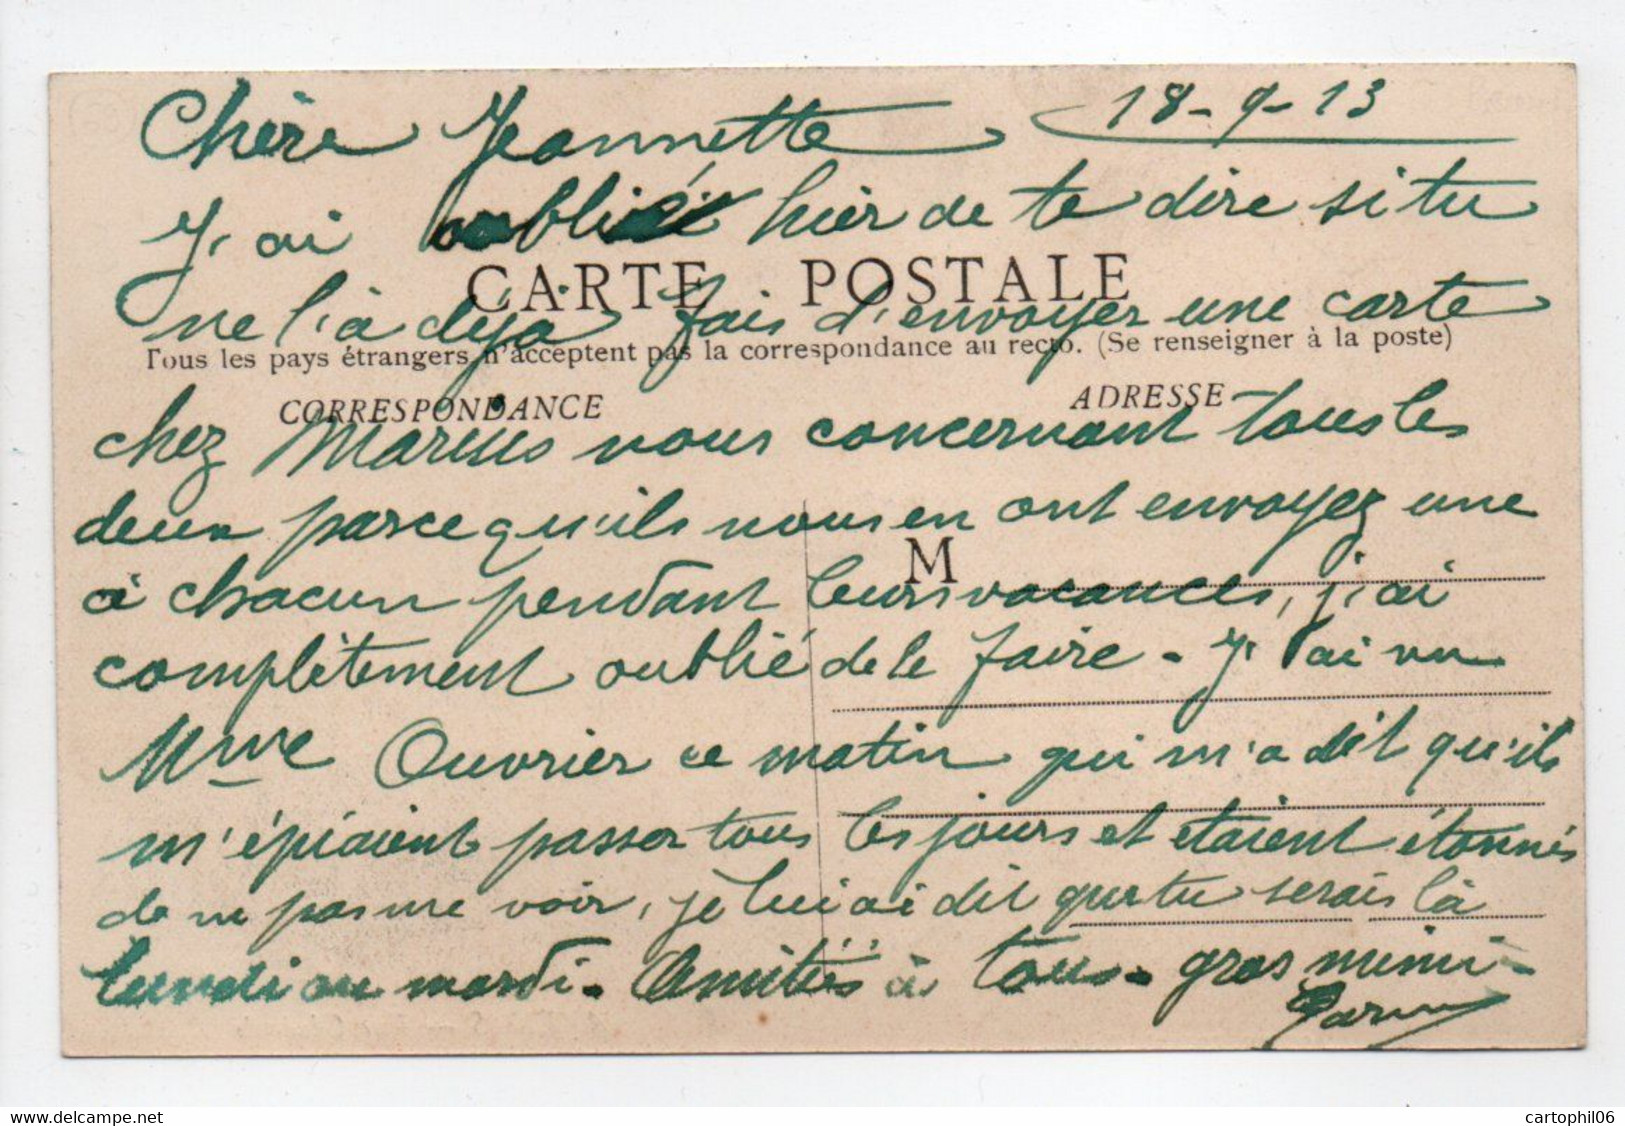 18-9-13
Chère Jeannette
J'ai oublié hier de te dire si tu
CARTE POSTALE
ne l'à déja fais d'envoyer une carte
Tous les pays étrangers n'acceptent pas la correspondance au recto. (Se renseigner à la poste)
CORRESPONDANCE ADRESSE
chez Marius nous concernant tous les
deux parce qu'ils nous en ont envoyez une
à chacun pendant leurs vacances, j'ai
M
complètement oublié de le faire - J'ai vu
Mme Ouvrier ce matin qui m'a dit qu'ils
m'épiaient passer tous les jours et etaient étonnés
de ne pas me voir, je lui ai dit que tu serais là
lundi ou mardi - Amitiés à tous - gros mimi -
www.delcampe.net
cartophil06